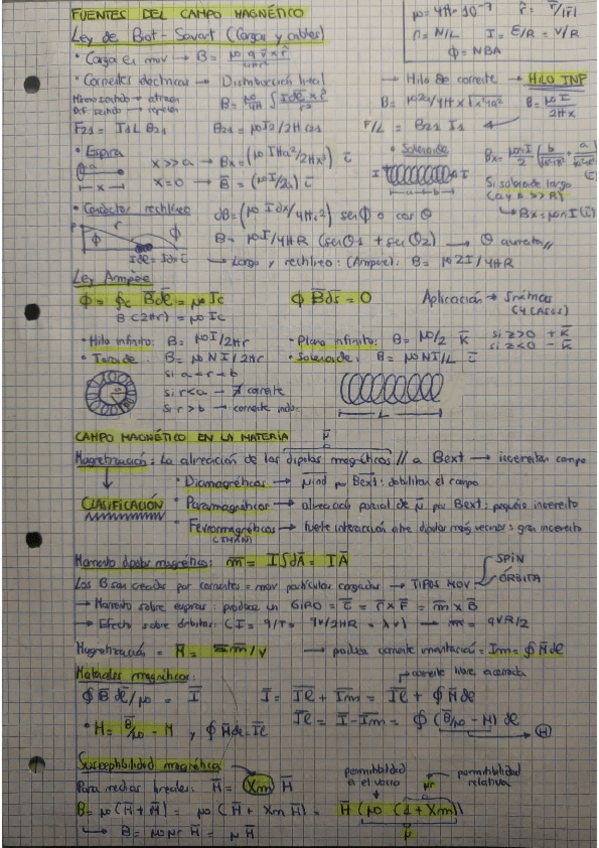 FUENTES DEL CAMPO MAGNÉTICO
μ0 = 4π·10⁻⁷ r̂ = r̄/|r̄|
n = N/L I = E/R = V/R
Φ = NBA
Ley de Biot-Savart (Cargas y cables)
• Carga en mov → B =
• Corrientes eléctricas → Distribución lineal → Hilo de corriente → HILO INF
Mismo sentido → atraen
B = μ0/4π ∫ B = μ0I/2πx
F21 = I1L B21 B21 = μ0I2/2π r21 F/L = B21 I1
• Espira x>>a → Bx = (μ0Iπa²/2πx³) ī
x=0 → B̄ = (μ0I/2a) ī
• Solenoide
Si solenoide largo
→ Bx = μ0nI (ī)
• Conductor rectilíneo dB = (μ0Idx/4πr²) senϕ o cosθ
B = μ0I/4πR (senθ1 + senθ2) → θ
Idl̄ = Idx ī → Largo y rectilíneo: (Ampère): B = μ02I/4πR
Ley Ampère
ϕ = ∮c B̄dl̄ = μ0Ic ϕ B̄ds̄ = 0 Aplicación → Simétricas
B(2πr) = μ0Ic (4 CASOS)
• Hilo infinito: B = μ0I/2πr • Plano infinito: B = μ0/2 k̄ si z>0 +k̄
si z<0 -k̄
• Toroide: B = μ0NI/2πr • Solenoide: B = μ0NI/L ī
si a<r<b
si r<a → ∄ corriente
si r>b → corriente
L
CAMPO MAGNÉTICO EN LA MATERIA
μ̄
Magnetización: La alineación de los dipolos magnéticos // a Bext → incrementan campo
CLASIFICACIÓN
• Diamagnéticos → μ̄ind por Bext: debilitan el campo
• Paramagnéticos → alineación parial de μ̄ por Bext: pequeño incremento
• Ferromagnéticos → fuerte interacción entre dipolos más vecinos: gran incremento
Momento dipolar magnético: m̄ = I∫dĀ = IĀ
Los B son creados por corrientes = mov partículas cargadas → TIPOS MOV
SPIN
ÓRBITA
→ Momento sobre espiras: produce un GIRO = τ̄ = r̄ × F̄ = m̄ × B̄
→ Efecto sobre órbitas: (I = q/T = qv/2πR = λv) → m = qvR/2
Magnetización = M̄ = Σm̄/V → produce corriente imantación = Im = ∮M̄dl̄
Materiales magnéticos: corriente libre encerrada
∮B̄dl̄/μ0 = Ī Ī = Īl + Īm = Īl + ∮M̄dl̄
Īl = Ī-Īm = ∮(B̄/μ0 - M̄)dl̄ → H
• H̄ = B̄/μ0 - M̄, y ∮H̄dl = Īl
Susceptibilidad magnética
Para medios lineales: M̄ = Xm H̄
permitibilidad en el vacío
permitibilidad relativa
μr
B̄ = μ0(H̄ + M̄) = μ0(H̄ + Xm H̄) = H̄(μ0(1 + Xm))
→ B = μ0μrH̄ = μH̄
μ